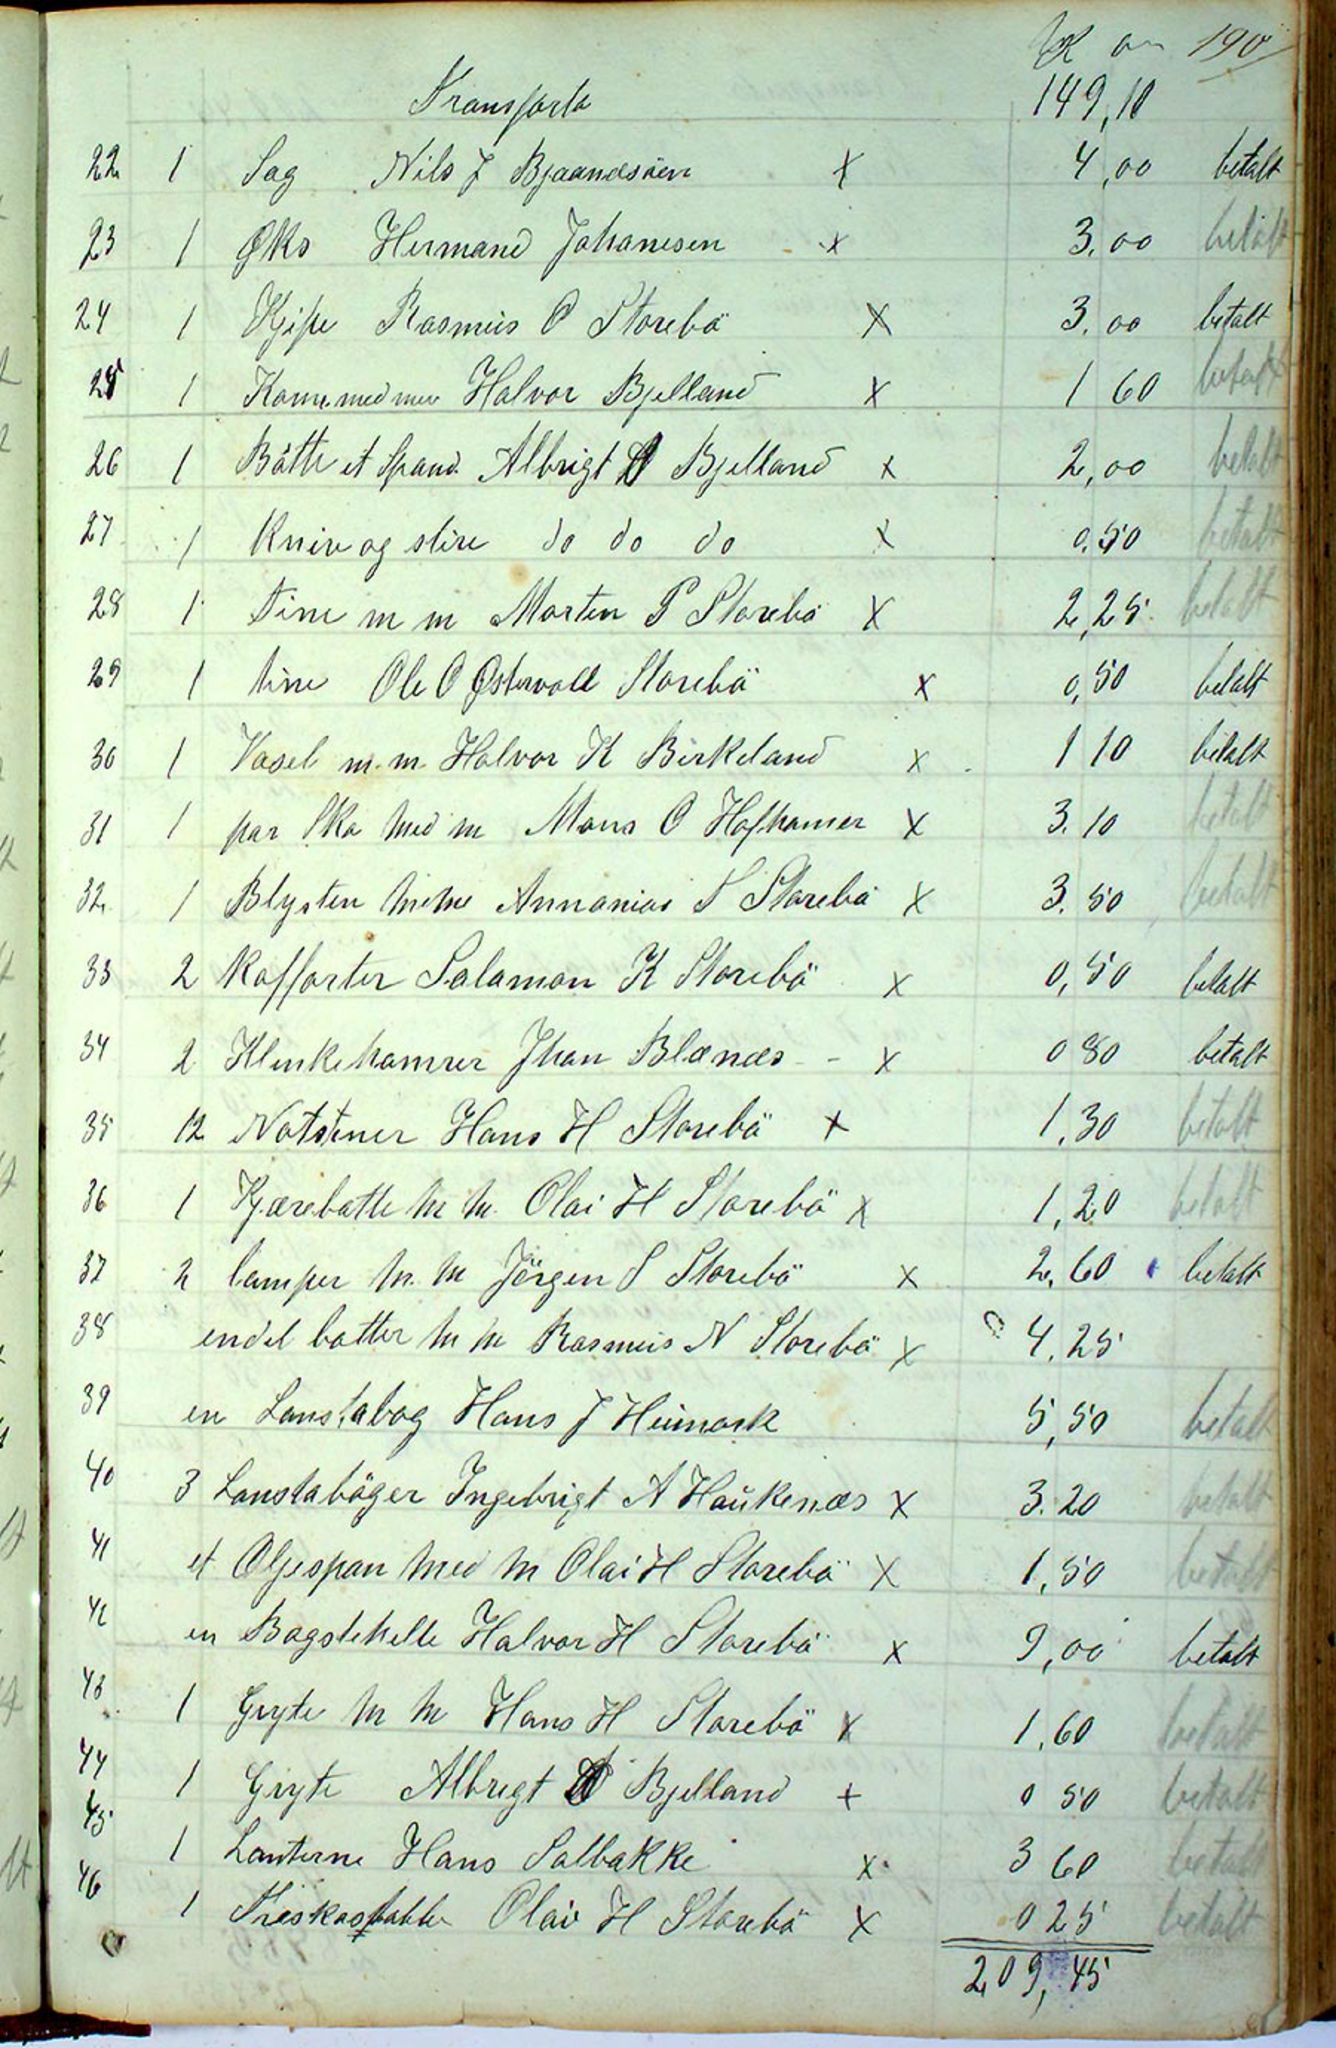 K 190
Transporta 149,10
22 1 Sag Nils J Bjaanesøen x 4,00 betalt
23 1 Øks Hermand Johanesen x 3.00 betalt
24 1 Kjipe Rasmus O Storebö x 3.00 betalt
25 1 med Halvor Bjelland x 1 60 betalt
26 1 Bötte et Spand Albrigt Bjelland x 2,00 betalt
27 1 Kniv og slire do do do x 0.50 betalt
28 1 Tine m m Morten P Storebö x 2,25 betalt
29 1 tine Ole O Østervold Storebö x 0,50 betalt
30 1 Vasel m.m. Halvor K Birkeland x 1 10 betalt
31 1 par Sko med m Mons O Hofhamer x 3.10 betalt
32 1 Blysten Annanias S Storebö x 3.50 betalt
33 2 Kofforter Salamon K Storebö x 0,50 betalt
34 2 Klinkehamrer Jhan Blænæs - x 0 80 betalt
35 12 Notstener Hans H Storebö x 1,30 betalt
36 1 Kjærebatte m m. Olai H Storebö x 1,20 betalt
37 2 lamper m. m Jörgen S Storebö x 2,60 betalt
38 endel batter m m Rasmus N Storebö x 4,25
39 en Lonstabog Hans J Heimark 5,50 betalt
40 3 Lonstaböger Ingebrigt A Haukenæs x 3.20 betalt
41 et Oljespan med m Olai H Storebö x 1,50 betalt
42 en Bagstehelle Halvor H Storebö x 9,00 betalt
43 1 Gryte m m Hans H Storebö x 1,60 betalt
44 1 Gryte Albregt Bjelland x 0 50 betalt
45 1 Lanterne Hans Salbakke x 3 60 betalt
46 1 Olai H Storebö x 0 25 betalt
209,45